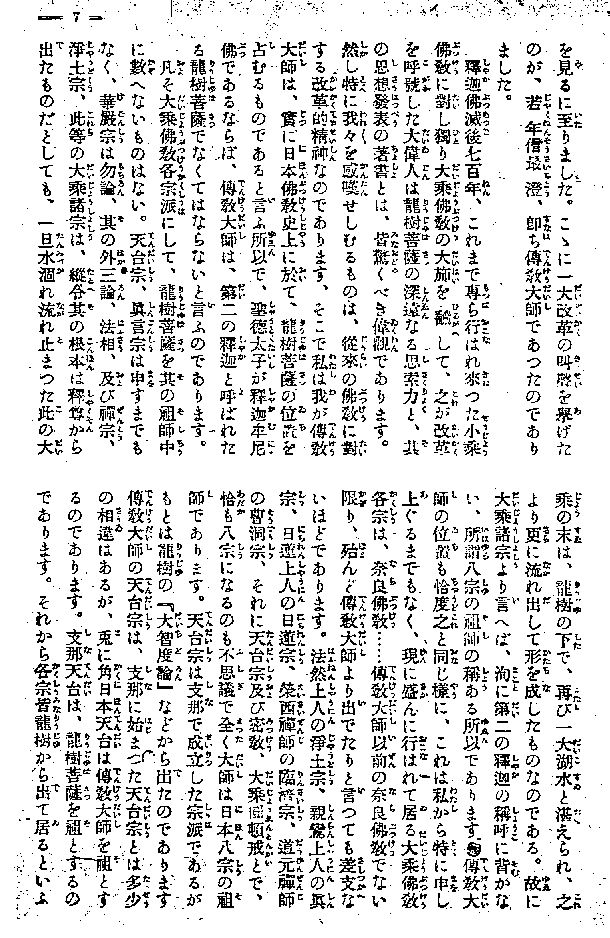 — 7 —
を見るに至りました。こゝに一大改革の叫聲を擧げた
のが、若年信最澄、卽ち傳敎大師であつたのであり
ました。
釋迦佛滅後七百年、これまで專ら行はれ來つた小乘
佛敎に對し獨り大乘佛敎の大旆を飜して、之が改革
を呼號した大偉人は龍樹菩薩の深遠なる思索力と、其
の思想發表の著書とは、皆驚くべき偉觀であります。
然し特に我々を感嘆せしむるものは、從來の佛敎に對
する改革的精神なのであります、そこで私は我が傳敎
大師は、實に日本佛敎史上に於て、龍樹菩薩の位置を
占むるものであると言ふ所以で、聖德太子が釋迦牟尼
佛であるならば、傳敎大師は、第二の釋迦と呼ばれた
る龍樹菩薩でなくてはならないと言ふのであります。
凡そ大乘佛敎各宗派にして、龍樹菩薩を其の祖師中
に數へないものはない。天台宗、眞言宗は申すまでも
なく、華嚴宗は勿論、其の外三論、法相、及び禪宗、
淨土宗、此等の大乘諸宗は、縱令其の根本は釋尊から
出たものだとしても、一旦水涸れ流れ止まつた此の大
乘の末は、龍樹の下で、再び一大湖水と湛えられ、之
より更に流れ出して形を成したものなのである。故に
大乘諸宗より言へば、洵に第二の釋迦の稱呼に背かな
い、所謂八宗の祖師の稱ある所以であります。傳敎大
師の位置も恰度之と同じ樣に、これは私から特に申し
上ぐるまでもなく、現に盛んに行はれて居る大乘佛敎
各宗は、奈良佛敎……傳敎大師以前の奈良佛敎でない
限り、殆んど傳敎大師より出でたりと言つても差支な
いほどであります。法然上人の淨土宗、親鸞上人の眞
宗、日蓮上人の日蓮宗、榮西禪師の臨濟宗、道元禪師
の曹洞宗、それに天台宗及び密敎、大乘圓頓戒とで、
恰も八宗になるのも不思議で全く大師は日本八宗の祖
師であります。天台宗は支那で成立した宗派であるが
もとは龍樹の『大智度論』などから出たのであります
傳敎大師の天台宗は、支那に始まつた天台宗とは多少
の相違はあるが、兎に角日本天台は傳敎大師を祖とす
るのであります。支那天台は、龍樹菩薩を祖とするの
であります。それから各宗皆龍樹から出て居るといふ